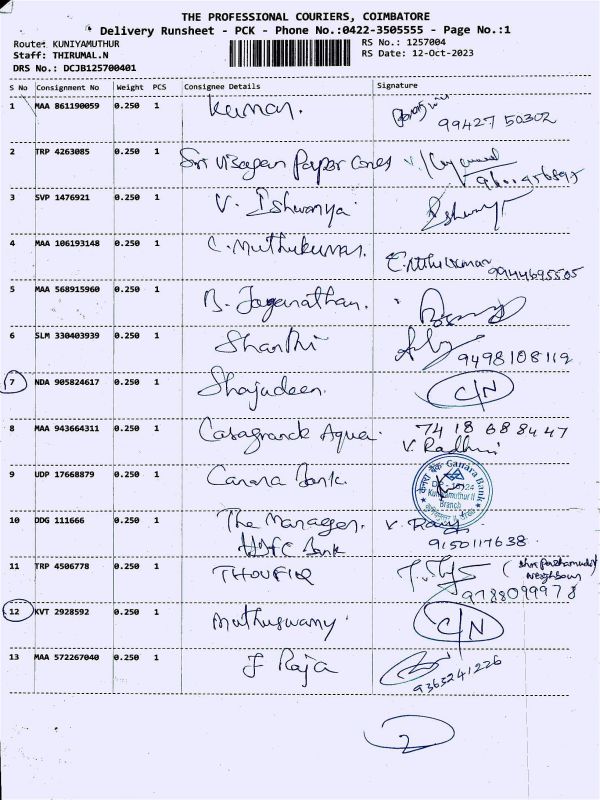 THE PROFESSIONAL COURIERS, COIMBATORE
Delivery Runsheet - PCK - Phone No.:0422-3505555 - Page No.:1
Route: KUNIYAMUTHUR
RS No.: 1257004
Staff: THIRUMAL.N
RS Date: 12-Oct-2023
DRS No.: DCJB125700401
S No Consignment No Weight PCS Consignee Details Signature
1 MAA 861190059 0.250 1 Kumar.
99427 50302
2 TRP 4263085 0.250 1 Sri Visagan Paper Cones
3 SVP 1476921 0.250 1 V. Ishwarya
4 MAA 106193148 0.250 1 C. Muthukumar.
9944695505
5 MAA 568915960 0.250 1 B. Jaganathan.
6 SLM 330403939 0.250 1 Shanthi
9498108112
7 NDA 905824617 0.250 1 Shajudeen. C/N
8 MAA 943664311 0.250 1 Casagrande Aqua. 74 18 68 84 47
V. Radhni
9 UDP 17668879 0.250 1 Canara Bank.
केनरा बैंक Canara Bank
Kuniyamuthur II
Branch
10 DDG 111666 0.250 1 The Manager. V. Ravi
HDFC Bank 9150117638
11 TRP 4506778 0.250 1 THOUFIQ
Neighbour
9788099978
12 KVT 2928592 0.250 1 Muthuswamy. C/N
13 MAA 572267040 0.250 1 J Raja
9363241226
2